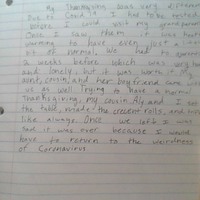 My Thanksgiving was very different
Due to Covid I had to be tested
before I could visit my grandparents
Once I saw them it was hard
wanting to have even just a little
bit of normal. We had to
2 weeks before which was very
and lonely, but it was worth it. My
aunt, cousin, and her boyfriend came with
us as well. Trying to have a normal
Thanksgiving, my cousin Aly and I set
the table, made the crescent rolls, and
like always. Once we left I was
sad it was over because I would
have to return to the weirdness
of Coronavirus.